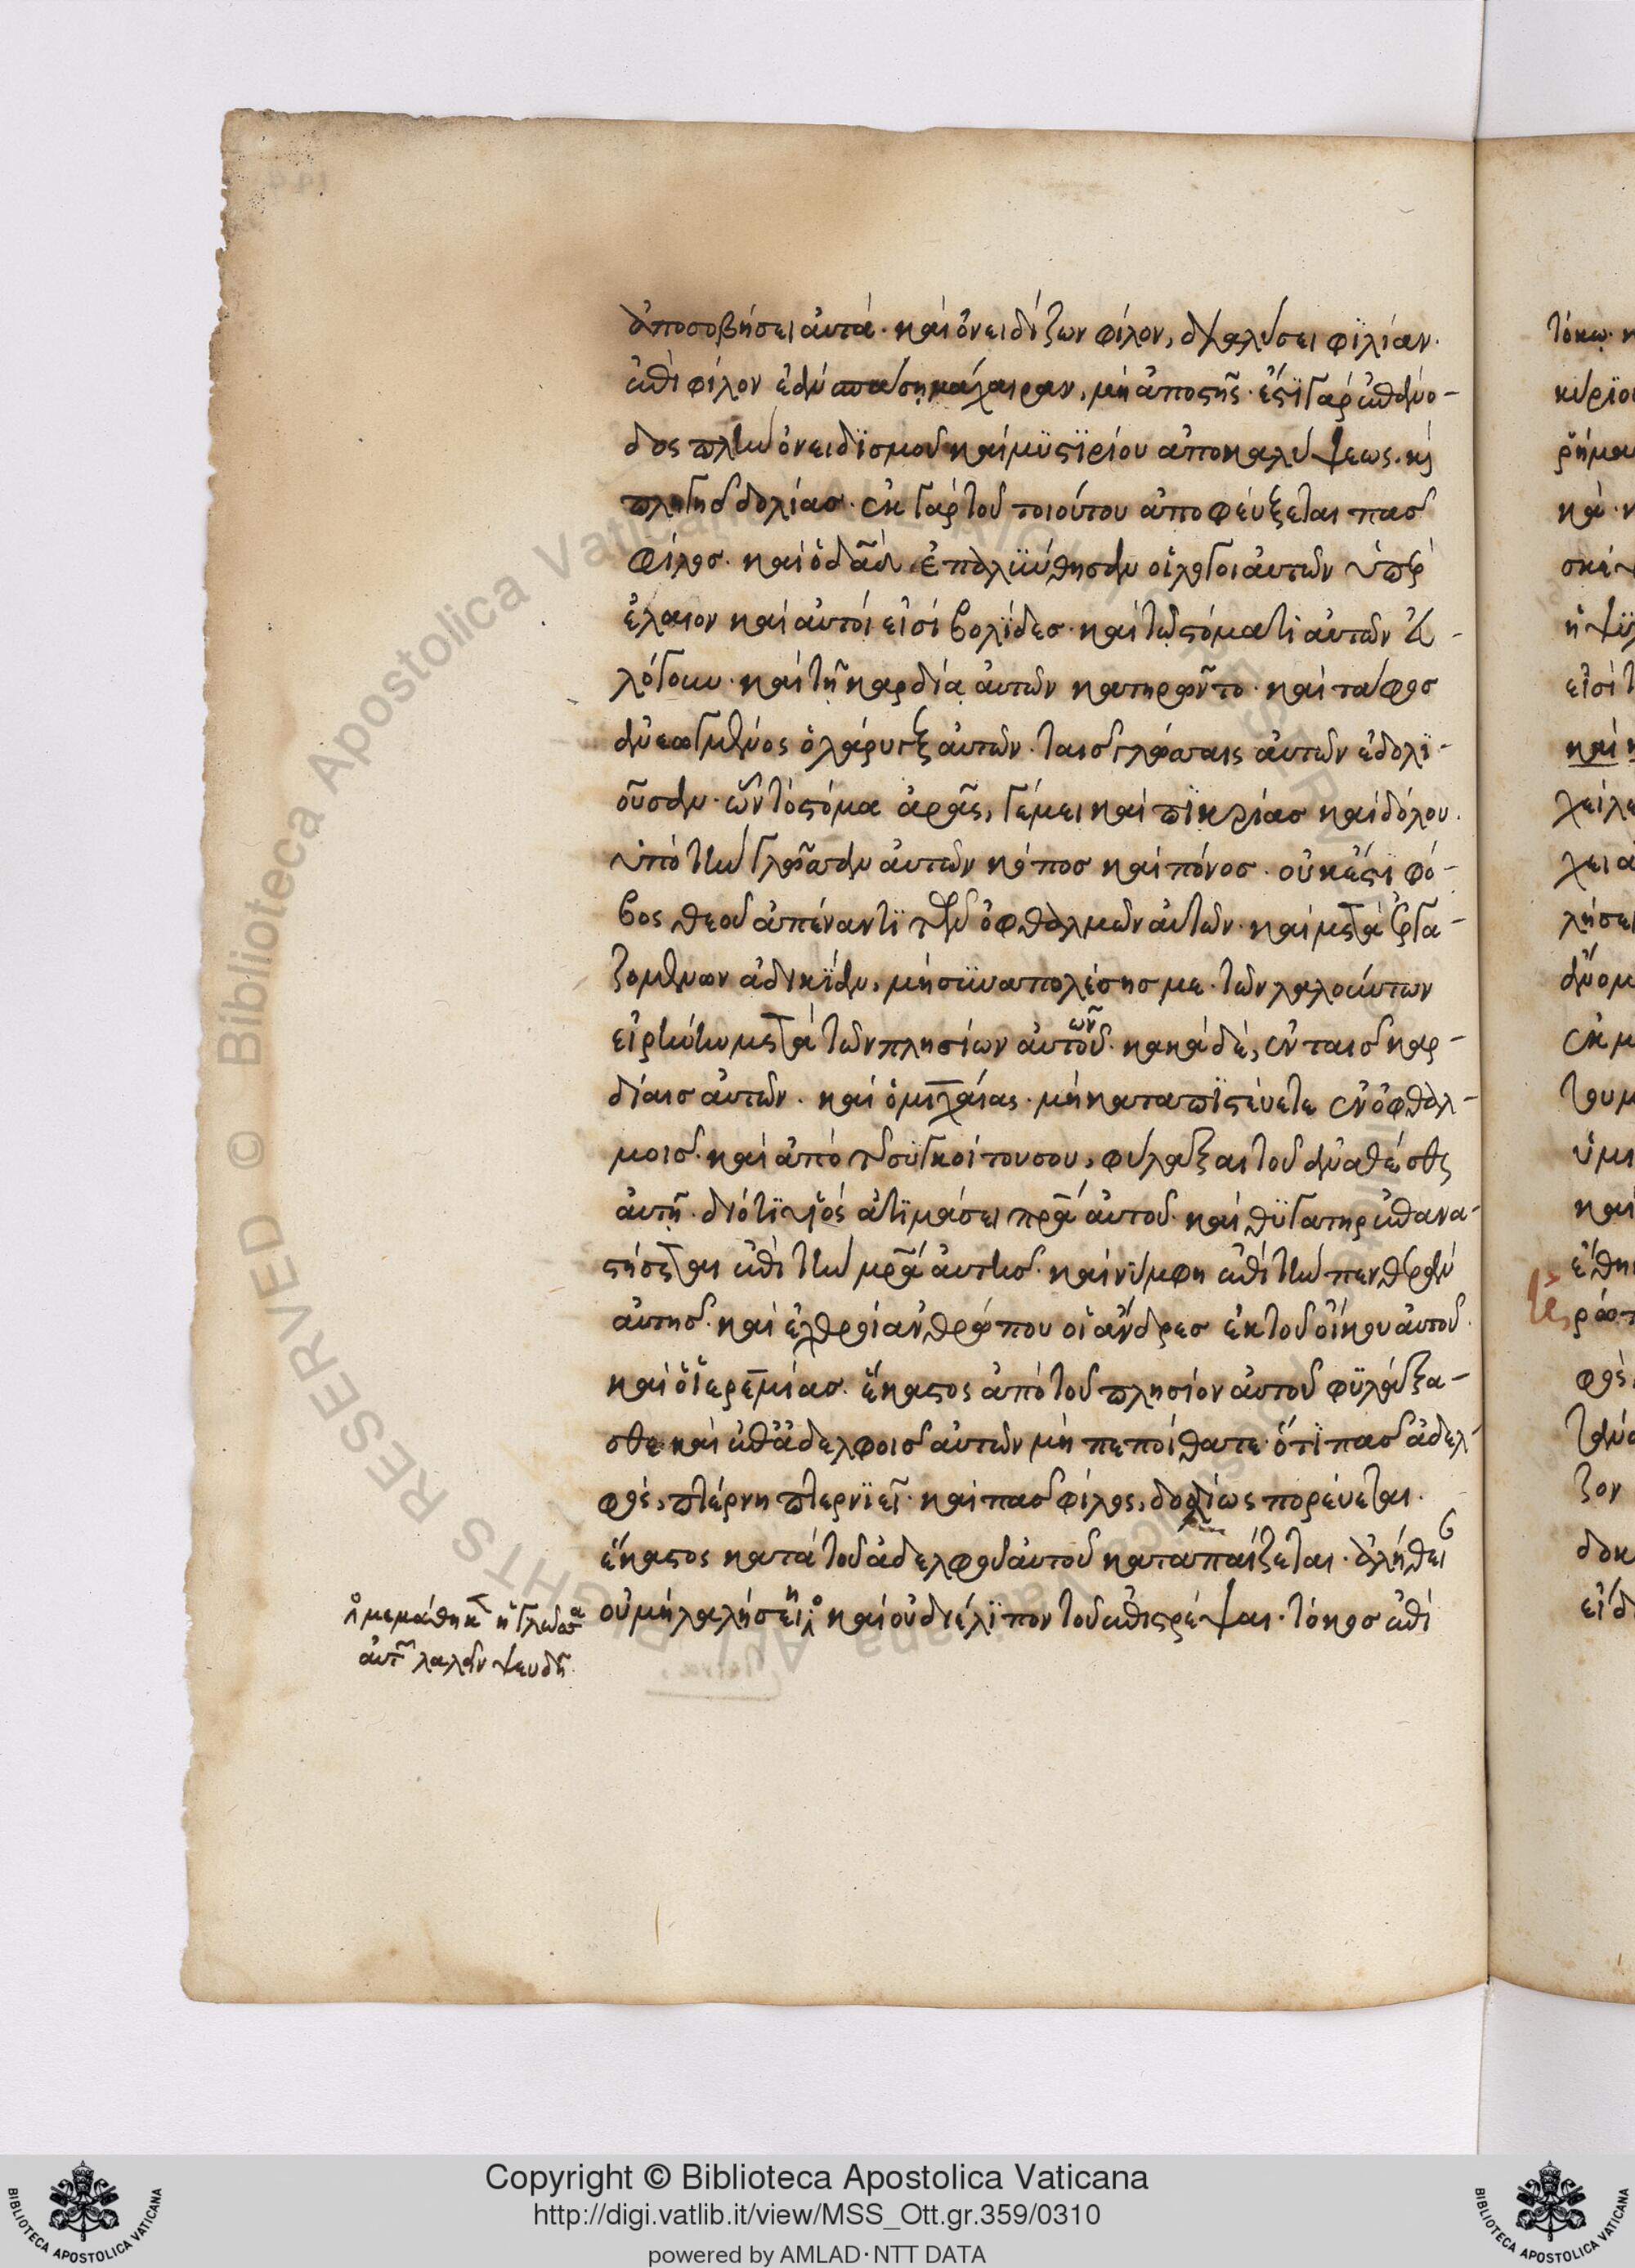 ἀποσοβήσει αὐτά· καὶ ὀνειδίζων φίλον, διαλύσει φϊλίαν·
ἐπὶ φίλον ἐὰν σπάσῃ μάχαιραν, μὴ ἀποστῆς· ἔστϊ γὰρ ἐπάνο-
δος πλὴν ὀνειδϊσμοῦ καὶ μϋστϊρίου ἀποκαλύψεως· κ(αὶ)
πληγῆς δολίας· ἐκ γὰρ τοῦ τοιούτου ἀποφεύξεται πᾶς
φίλος· καὶ ὁ δᾱδ· ἐπαλϋύθησαν οἱ λόγοι αὐτῶν ὑπὲρ
ἔλαιον καὶ αὐτοί εἰσί βολίδες· καὶ τῷ στόματι αὐτῶν εὐ-
λόγουν· καὶ τῇ καρδίᾳ αὐτῶν κατηρῶντο· καὶ τάφος
ἀνεωγμένος ὁ λάρυγξ αὐτῶν· ταῖς γλώσσαις αὐτῶν ἐδολϊ-
οῦσαν· ὧν τὸ στόμα ἀρᾶς, γέμει καὶ πϊκρίας καὶ δόλου·
ὑπὸ τὴν γλῶσσαν αὐτῶν κόπος καὶ πόνος· οὐκ ἔστι φό-
βος θεοῦ ἀπέναντϊ τῶν ὀφθαλμῶν αὐτῶν· καὶ μετὰ ἐργα-
ζομένων ἀδικΐαν, μὴ σϋναπολέσης με· τῶν λαλούντων
εἰρήνην μετὰ τῶν πλησίων αὐτοῦ ῶν· κακὰ δὲ, ἐν ταῖς καρ-
δίαις αὐτῶν· καὶ ὁ μιχαίας· μὴ καταπϊστεύετε ἐν ὀφθαλ-
μοῖς· καὶ ἀπὸ τῆς συγκοίτου σου, φύλαξαι τοῦ ἀναθέσθαι
αὐτῇ· διότϊ υἱὸς ἀτϊμάσει πρᾱ αὐτοῦ· καὶ θϋγατηρ ἐπανα-
στήσεται ἐπὶ τὴν μρᾱ αὐτῆς· καὶ νύμφη ἐπὶ τὴν πενθερὰν
αὐτῆς· καὶ ἐχθροὶ ἀνθρώπου οἱ ἄνδρες ἐκ τοῦ οἴκου αὐτοῦ·
καὶ ὁ ἱερεμίας· ἕκαστος ἀπὸ τοῦ πλησίον αὐτοῦ φϋλάξα-
σθε· καὶ ἐπ' ἀδελφοῖς αὐτῶν μὴ πεποίθατε· ὅτϊ πᾶς ἀδελ-
φός, πτέρνη πτερνϊεῖ· καὶ πᾶς φίλος, δολίως πορεύεται·
ἕκαστος κατὰ τοῦ ἀδελφοῦ αὐτοῦ καταπαίζεται· ἀλήθει
οὐ μὴ λαλήσει η καὶ οὐ διέλϊπον τοῦ ἐπιστρέψαι· τόκος ἐπὶ
μεμάθηκε ἡ γλῶσσα
αὐτῶν λαλεῖν ψευδῆ·
Copyright © Biblioteca Apostolica Vaticana
http://digi.vatlib.it/view/MSS_Ott.gr.359/0310
powered by AMLAD·NTT DATA